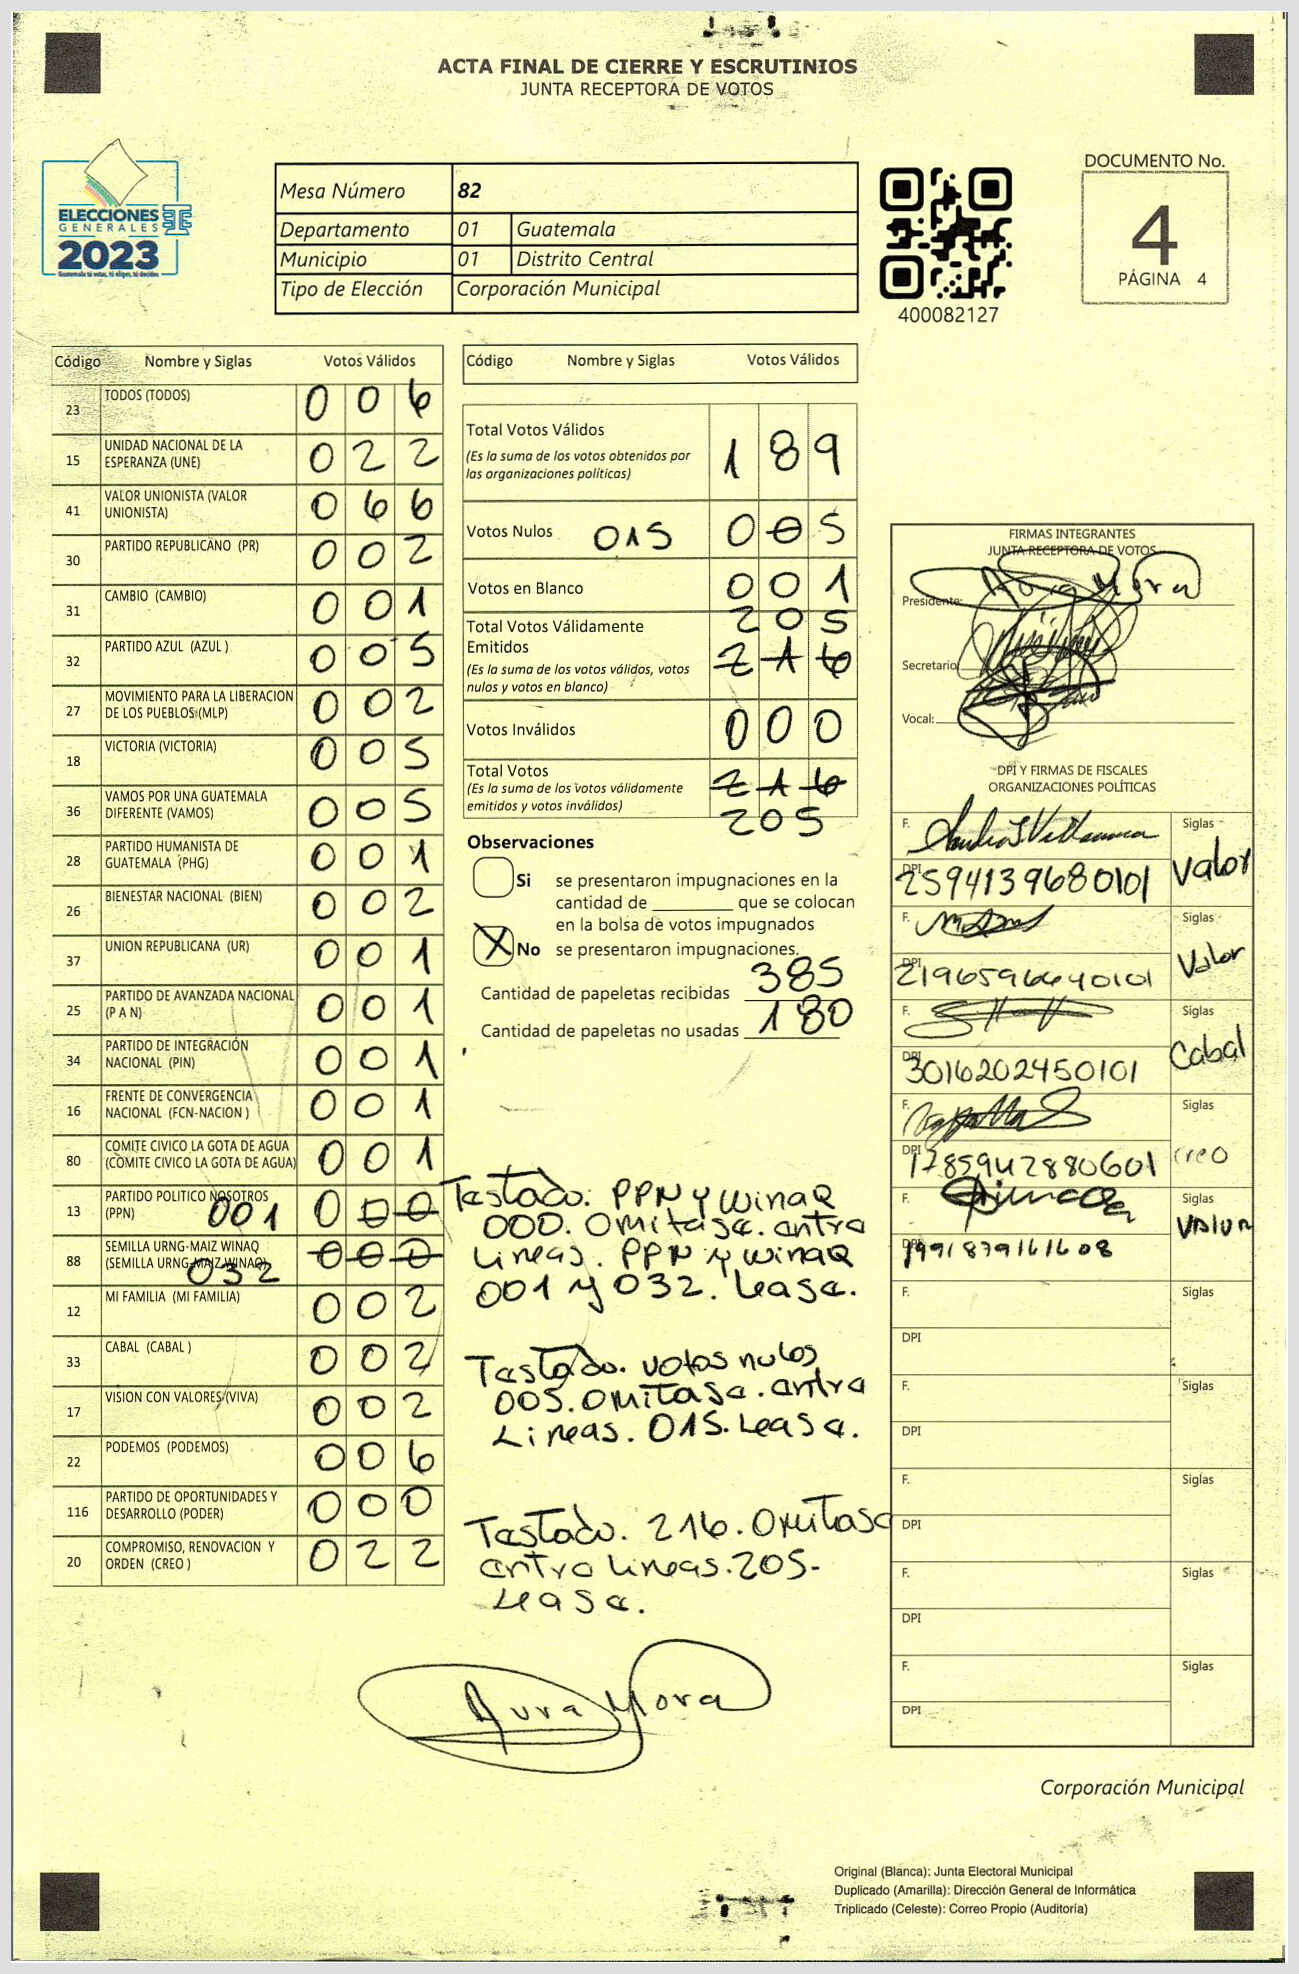 ACTA FINAL DE CIERRE Y ESCRUTINIOS
JUNTA RECEPTORA DE VOTOS
ELECCIONES
GENERALES
2023
Guatemala tú votas, tú eliges, tú decides
Mesa Número 82
Departamento 01 Guatemala
Municipio 01 Distrito Central
Tipo de Elección Corporación Municipal
400082127
DOCUMENTO No.
4
PÁGINA 4
Código Nombre y Siglas Votos Válidos
23 TODOS (TODOS) 0 0 6
15 UNIDAD NACIONAL DE LA
ESPERANZA (UNE) 0 2 2
41 VALOR UNIONISTA (VALOR
UNIONISTA) 0 6 6
30 PARTIDO REPUBLICANO (PR) 0 0 2
31 CAMBIO (CAMBIO) 0 0 1
32 PARTIDO AZUL (AZUL ) 0 0 5
27 MOVIMIENTO PARA LA LIBERACION
DE LOS PUEBLOS (MLP) 0 0 2
18 VICTORIA (VICTORIA) 0 0 5
36 VAMOS POR UNA GUATEMALA
DIFERENTE (VAMOS) 0 0 5
28 PARTIDO HUMANISTA DE
GUATEMALA (PHG) 0 0 1
26 BIENESTAR NACIONAL (BIEN) 0 0 2
37 UNION REPUBLICANA (UR) 0 0 1
25 PARTIDO DE AVANZADA NACIONAL
(P A N) 0 0 1
34 PARTIDO DE INTEGRACIÓN
NACIONAL (PIN) 0 0 1
16 FRENTE DE CONVERGENCIA
NACIONAL (FCN-NACION ) 0 0 1
80 COMITE CIVICO LA GOTA DE AGUA
(COMITE CIVICO LA GOTA DE AGUA) 0 0 1
13 PARTIDO POLITICO NOSOTROS
(PPN) 001 0 0 0
88 SEMILLA URNG-MAIZ WINAQ
(SEMILLA URNG-MAIZ WINAQ) 0 0 0
032
12 MI FAMILIA (MI FAMILIA) 0 0 2
33 CABAL (CABAL ) 0 0 2
17 VISION CON VALORES (VIVA) 0 0 2
22 PODEMOS (PODEMOS) 0 0 6
116 PARTIDO DE OPORTUNIDADES Y
DESARROLLO (PODER) 0 0 0
20 COMPROMISO, RENOVACION Y
ORDEN (CREO ) 0 2 2
Código Nombre y Siglas Votos Válidos
Total Votos Válidos 1 8 9
(Es la suma de los votos obtenidos por
las organizaciones políticas)
Votos Nulos 015 0 0 5
Votos en Blanco 0 0 1
205
Total Votos Válidamente
Emitidos 2 1 6
(Es la suma de los votos válidos, votos
nulos y votos en blanco)
Votos Inválidos 0 0 0
Total Votos 2 1 6
(Es la suma de los votos válidamente
emitidos y votos inválidos)
205
Observaciones
Si se presentaron impugnaciones en la
cantidad de ________ que se colocan
en la bolsa de votos impugnados
X No se presentaron impugnaciones.
Cantidad de papeletas recibidas 385
Cantidad de papeletas no usadas 180
Testado. PPN y WINAQ
000. Omitase. entre
Lineas. PPN y WINAQ
001 y 032. Lease.
Testado. votos nulos
005. Omitase. entre
Lineas. 015. Lease.
Testado. 216. Omitase
entre lineas. 205-
Lease.
Aura Mora
FIRMAS INTEGRANTES
JUNTA RECEPTORA DE VOTOS
Presidente: Aura Mora
Secretario
Vocal:
DPI Y FIRMAS DE FISCALES
ORGANIZACIONES POLÍTICAS
F. Siglas
DPI 2594139680101 Valor
F. Siglas
DPI 2196596640101 Valor
F. Siglas
DPI 3016202450101 Cabal
F. Siglas
DPI 1785942880601 creo
F. Siglas
DPI 1991879161608 VALOR
F. Siglas
DPI
F. Siglas
DPI
F. Siglas
DPI
F. Siglas
DPI
F. Siglas
DPI
Corporación Municipal
Original (Blanca): Junta Electoral Municipal
Duplicado (Amarilla): Dirección General de Informática
Triplicado (Celeste): Correo Propio (Auditoría)